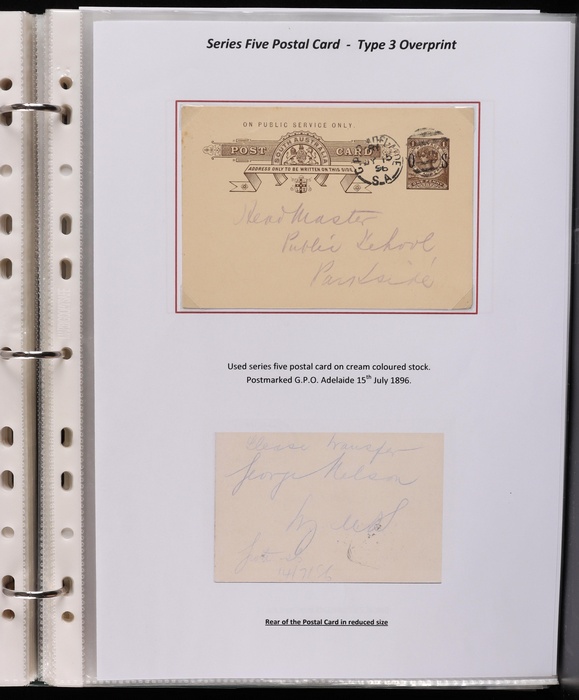 Series Five Postal Card - Type 3 Overprint
ON PUBLIC SERVICE ONLY.
SOUTH AUSTRALIA
POST CARD
ADDRESS ONLY TO BE WRITTEN ON THIS SIDE
G.P.O. ADELAIDE
JY 15
96
S.A
O S
Head Master
Public School
Parkside
Used series five postal card on cream coloured stock.
Postmarked G.P.O. Adelaide 15th July 1896.
Please transfer
George Nelson
Rear of the Postal Card in reduced size